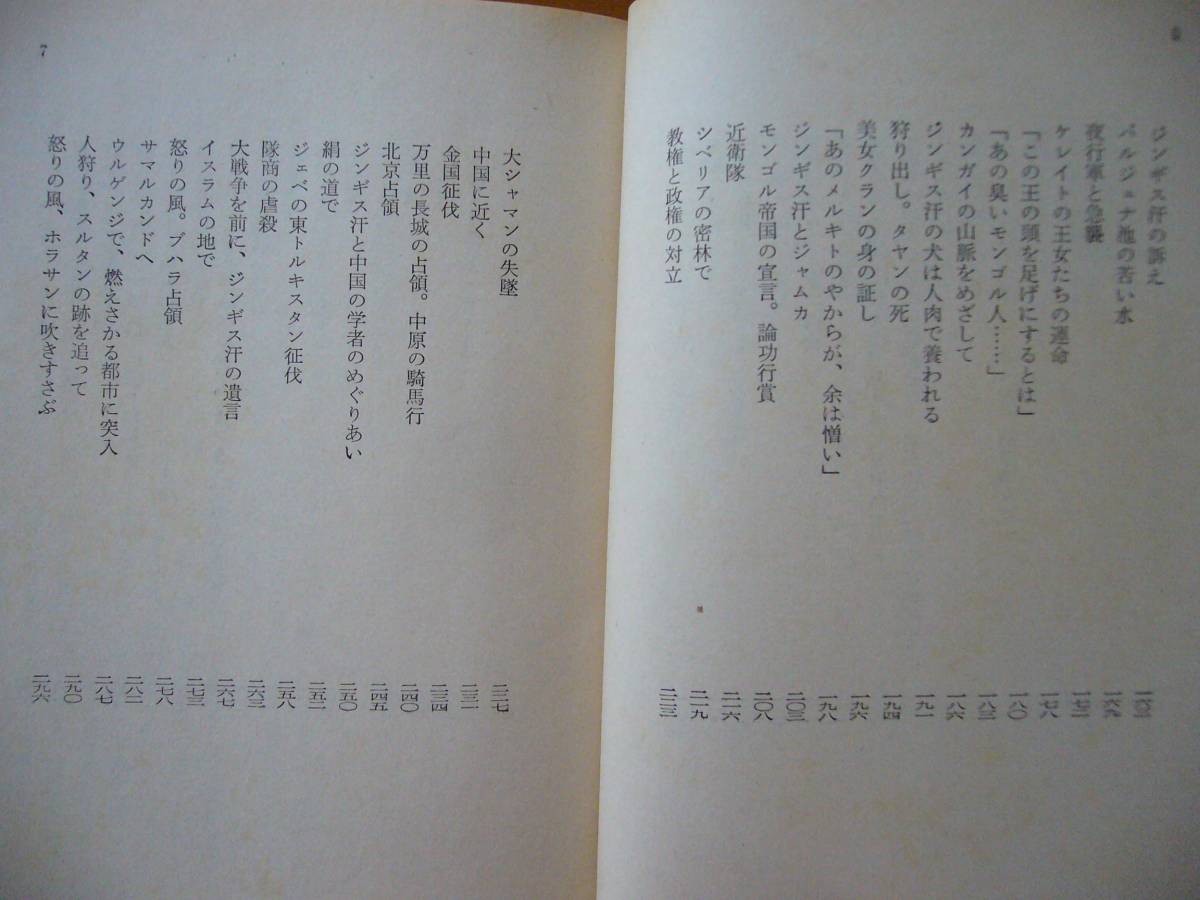 ジンギス汗の訴え
バルジュナ池の苦い水 一六九
夜行軍と急襲
ケレイトの王女たちの運命 一七八
「この王の頭を足げにするとは」 一八〇
「あの臭いモンゴル人……」
カンガイの山脈をめざして 一八六
ジンギス汗の犬は人肉で養われる 一九一
狩り出し。タヤンの死 一九四
美女クランの身の証し 一九六
「あのメルキトのやからが、余は憎い」 一九八
ジンギス汗とジャムカ 二〇三
モンゴル帝国の宣言。論功行賞 二〇八
近衛隊 二一六
シベリアの密林で 二一九
教権と政権の対立 二二三
7
大シャマンの失墜 二二七
中国に近く 二三一
金国征伐 二三四
万里の長城の占領。中原の騎馬行 二四〇
北京占領 二四五
ジンギス汗と中国の学者のめぐりあい 二五〇
絹の道で 二五二
ジェベの東トルキスタン征伐 二五八
隊商の虐殺 二六三
大戦争を前に、ジンギス汗の遺言 二六七
イスラムの地で 二七三
怒りの風。ブハラ占領 二七八
サマルカンドへ 二八二
ウルゲンジで、燃えさかる都市に突入 二八七
人狩り、スルタンの跡を追って 二九〇
怒りの風、ホラサンに吹きすさぶ 二九六